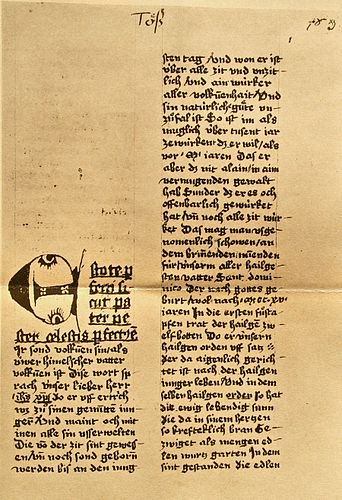 Töß
1
Estote p
fecti si
cut pa
ter ve
ster celestis pfectus
Ir sond volkumen sin / als
üwer himelscher vatter
volkumen ist Dise wort sp
rach vnser lieber herr
ihs xps do er vff ertrich
wz zů sinen gemüte iun
ger Vnd maint och mit
inen alle sin vsserwelten
Die vō der zit sint geweſ
en / vn noch sond geborn
werden bis an den iung
sten tag / Vnd won er ist
über alle zit vnd vnzit
lich / Vnd ain würker
aller volkumenhait / Vnd
sin natürlich güte vn
zůfal ist So ist im als
muglich über tusent iar
ze würkent dz er wil / als
vor iaren Das er
aber dz nit alain / in aim
vermugenden gewalt
hab Sunder dz er es och
offenbarlich gewürket
hat / Vn noch alle zit wür
ket Das mag man vsge
nomenlich schowen / an
dem brinenden / minenden
fürsten vnserm aller hailge
sten vatter Sant domi
nico Der nach gottes ge
burt / wol nach
iaren In die ersten fůsta
pfen trat der hailge zw
elfbotten Do er vnsern
hailgen orden vff san
Der da aigenlich gerich
tet ist nach der hailgen
iunger leben / Vnd in dem
selben hailgen orden so hat
die ewig lebendig sunn
die da in sinem hertzen
so krefteklich bran Ge
zwiget als mengen ed
len wurtz garten In dem
sint gestanden die edlen